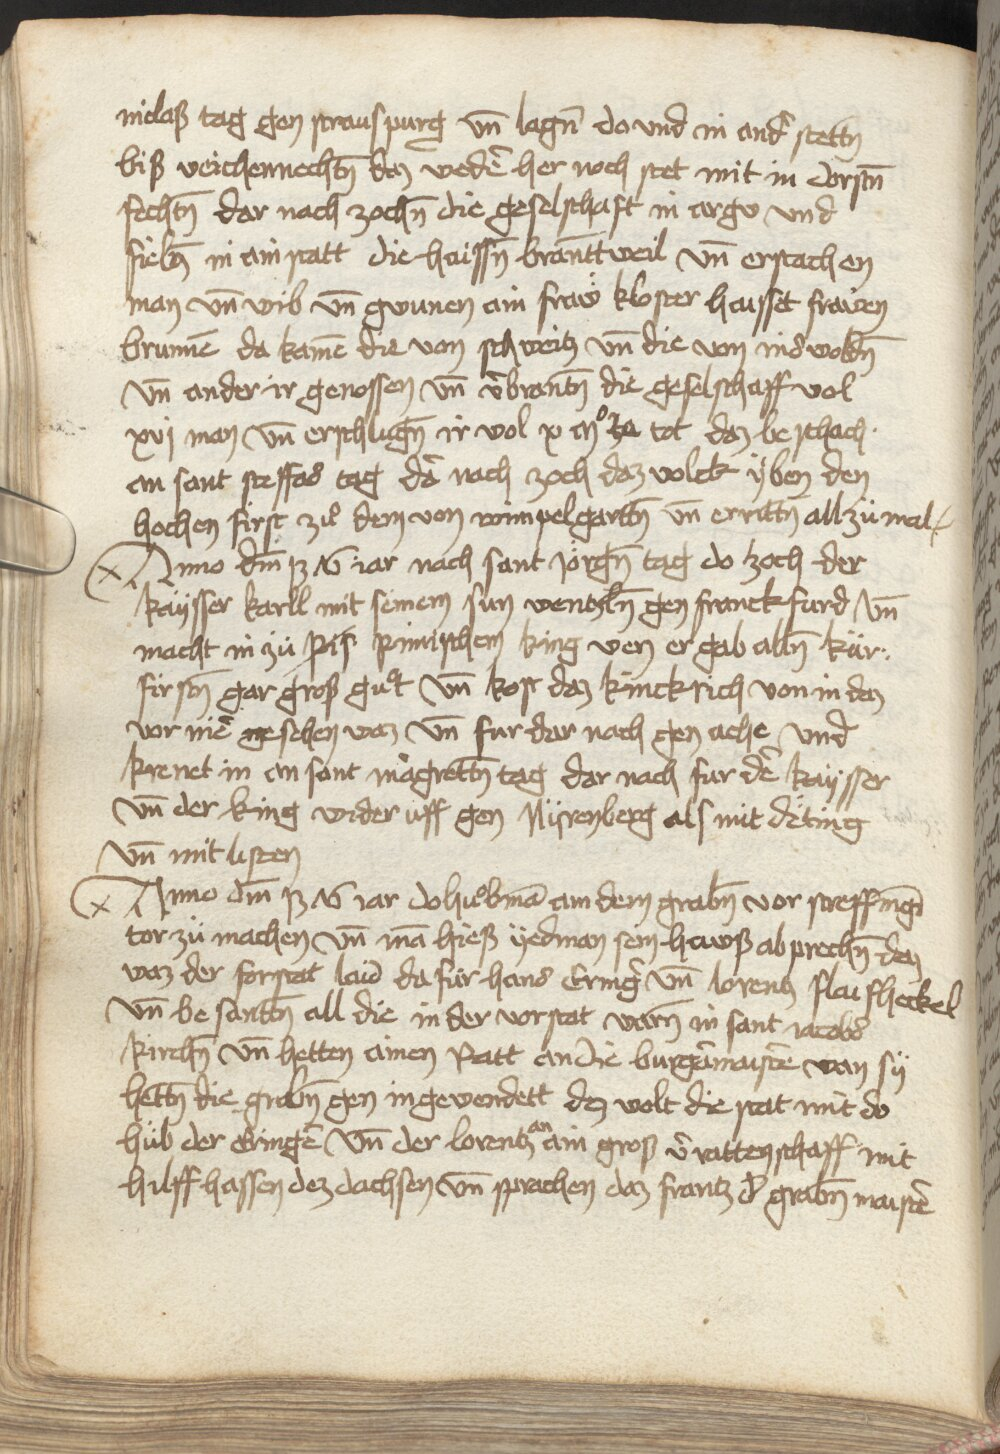 niclaß tag gen strauspurg vn̄ lagn̄ do vnd in and̓ stettn̄
biß veichennechtn̄ daz weder̄ her noch stet mit in dorstn̄
fechtn̄ dar nach zochn̄ die geselschaft in argv vnd
fieln̄ in ain statt die haissn̄ branttweil vn̄ erstachen
man vn̄ wib vn̄ gwunen ain fraẅ kloster haisset frawen
brunnē da kamē die von schweitz vn̄ die von
vn̄ ander ir genossen vn̄ v̄brantn̄ die geselschaff vol
xvj man vn̄ erschlugn̄ ir wol tot daz beschach
an sant steffans tag dā nach zoch daz volck ÿben den
hochen first zuͦ dem von wimpelgarttn̄ vn̄ errittn̄ all zü mal
Anno dm̄ iar nach sant Jörgn̄ tag do zoch der
kaÿsser karll mit seinem sun ventzln̄ gen franckfurd vn̄
macht in zü king ven er gab alln̄ kür
firstn̄ gar groß guͦt vn̄ kost daz kinckrich von in daz
vor niē gesehen waz vn̄ fur dar nach gen ache vnd
krenet in an sant mägrettn̄ tag dar nach fur dē kaÿsser
vn̄ der king wider uff gen Nÿrenberg als mit dëting
vn̄ mit listen
Anno dm̄ iar do huͦb mā an dem grabn̄ vor streffingē
tor zü machen vn̄ mā hieß ÿedman sein hawß ab prechn̄ daz
waz der forstat laid da für hans Ering̓ vn̄ lorentz flaisheckel
vn̄ besantn̄ all die in der vorstat warn̄ in sant iacobs
kirchn̄ vn̄ hetten ainen Ratt an die burgēmaistē wan sÿ
hettn̄ die grabn̄ gen in gewendett daz wolt die stat nit do
hüb der Eringē vn̄ der lorentz an ain groß v̄rattenschaff mit
hilff hassen dez dachsen vn̄ sprachen daz frantz d̓ grabn̄ maistē